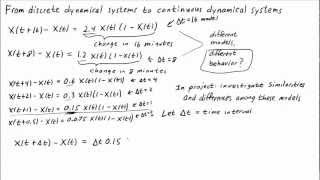 From discrete dynamical systems to continuous dynamical systems
X(t+16) - X(t) = 2.4 X(t)(1-X(t)) ← Δt=16 model
change in 16 minutes
X(t+8) - X(t) = 1.2 X(t)(1-X(t)) ← Δt=8
change in 8 minutes
different models, different behavior?
X(t+4) - X(t) = 0.6 X(t)(1-X(t)) ← Δt=4
X(t+2) - X(t) = 0.3 X(t)(1-X(t)) ← Δt=2
X(t+1) - X(t) = 0.15 X(t)(1-X(t)) ← Δt=1
X(t+0.5) - X(t) = 0.075 X(t)(1-X(t))
In project: investigate similarities
and differences among these models
Let Δt = time interval
X(t+Δt) - X(t) = Δt 0.15